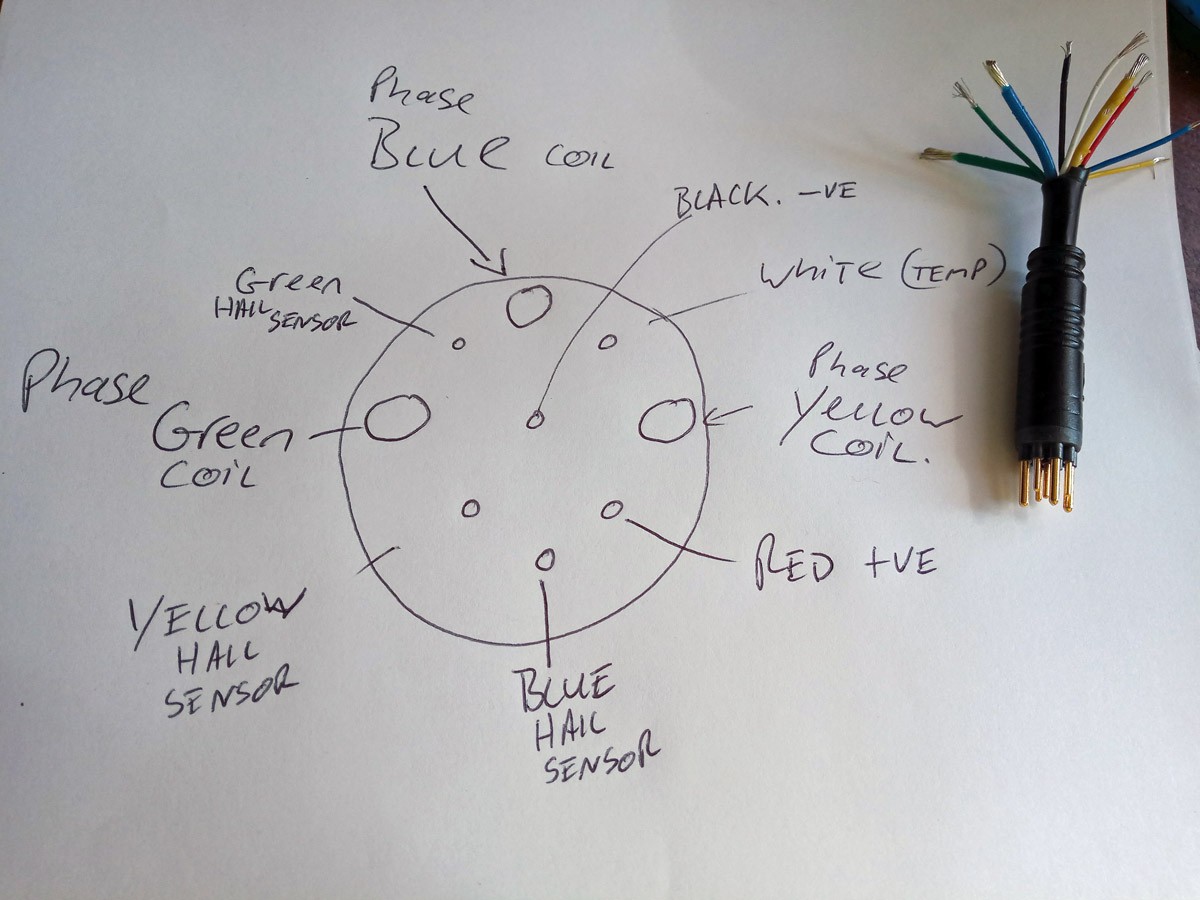 Phase
BLUE COIL
BLACK. -VE
Green
HALL
SENSOR
WHITE (TEMP)
Phase
Green
COIL
Phase
Yellow
COIL.
RED +VE
YELLOW
HALL
SENSOR
BLUE
HALL
SENSOR